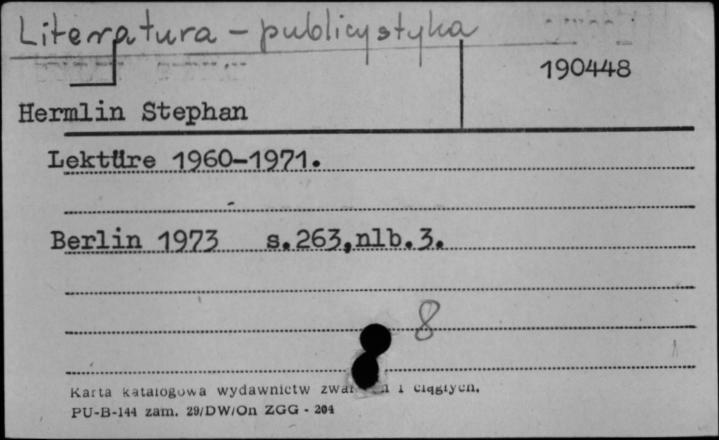 Literatura - publicystyka
190448
Hermlin Stephan
Lektüre 1960-1971.
Berlin 1973 s.263,nlb.3.
8
Karta katalogowa wydawnictw i ciągłych.
PU-B-144 zam. 29/DW/On ZGG - 204